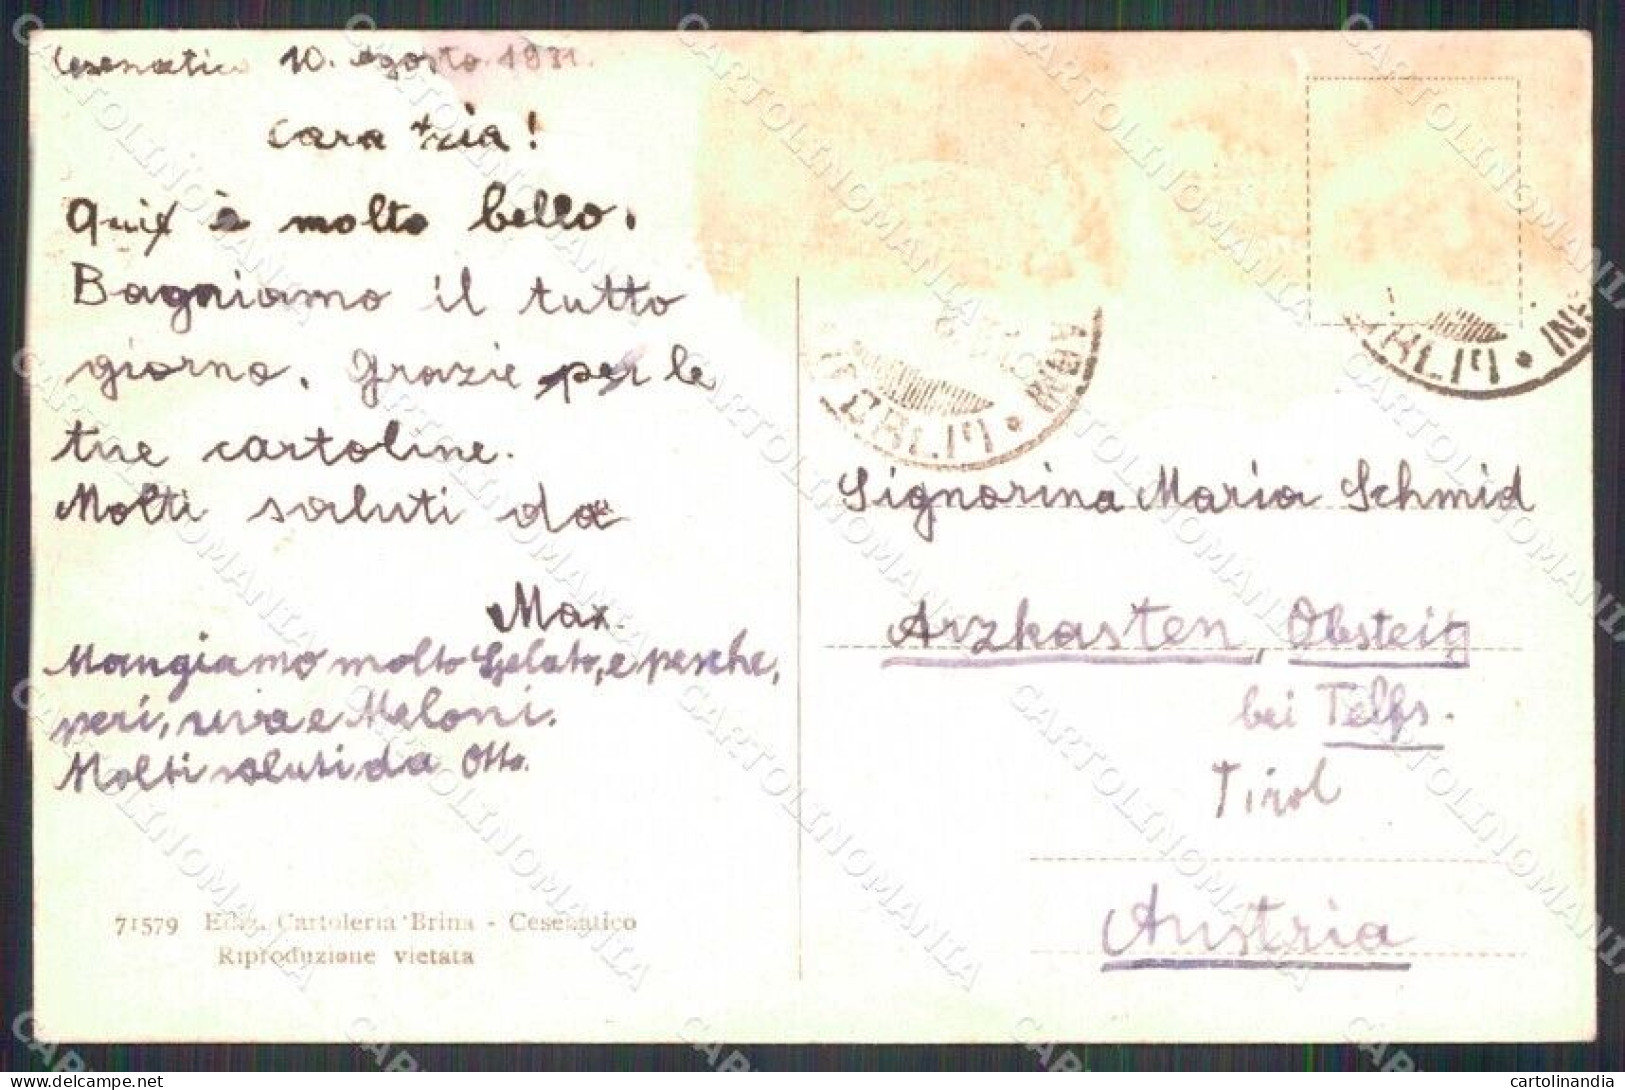 Cesenatico 10. Agosto 1931.
Cara zia!
Qui è molto bello.
Bagniamo il tutto
giorno. Grazie per le
tue cartoline.
Molti saluti da
Max.
Mangiamo molto Gelato, e pesche,
peri, uva e Meloni.
Molti saluti da Otto.
71579 Ediz. Cartoleria Brina - Cesenatico
Riproduzione vietata
Signorina Maria Schmid
Arzkasten, Obsteig
bei Telfs.
Tirol
Austria
CARTOLINOMANIA
cartolinandia